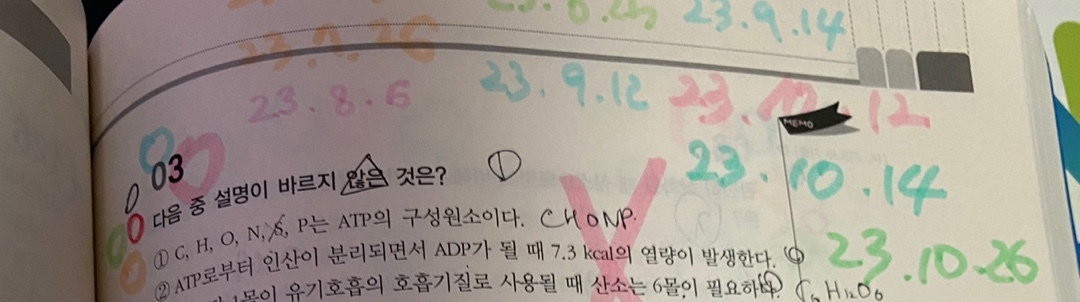 23.8.6
23.9.12
23.9.14
23.10.12
MEMO
23.10.14
23.10.26
03
다음 중 설명이 바르지 않은 것은? ①
① C, H, O, N, S, P는 ATP의 구성원소이다. CHONP.
② ATP로부터 인산이 분리되면서 ADP가 될 때 7.3 kcal의 열량이 발생한다.
1몰이 유기호흡의 호흡기질로 사용될 때 산소는 6몰이 필요하다.